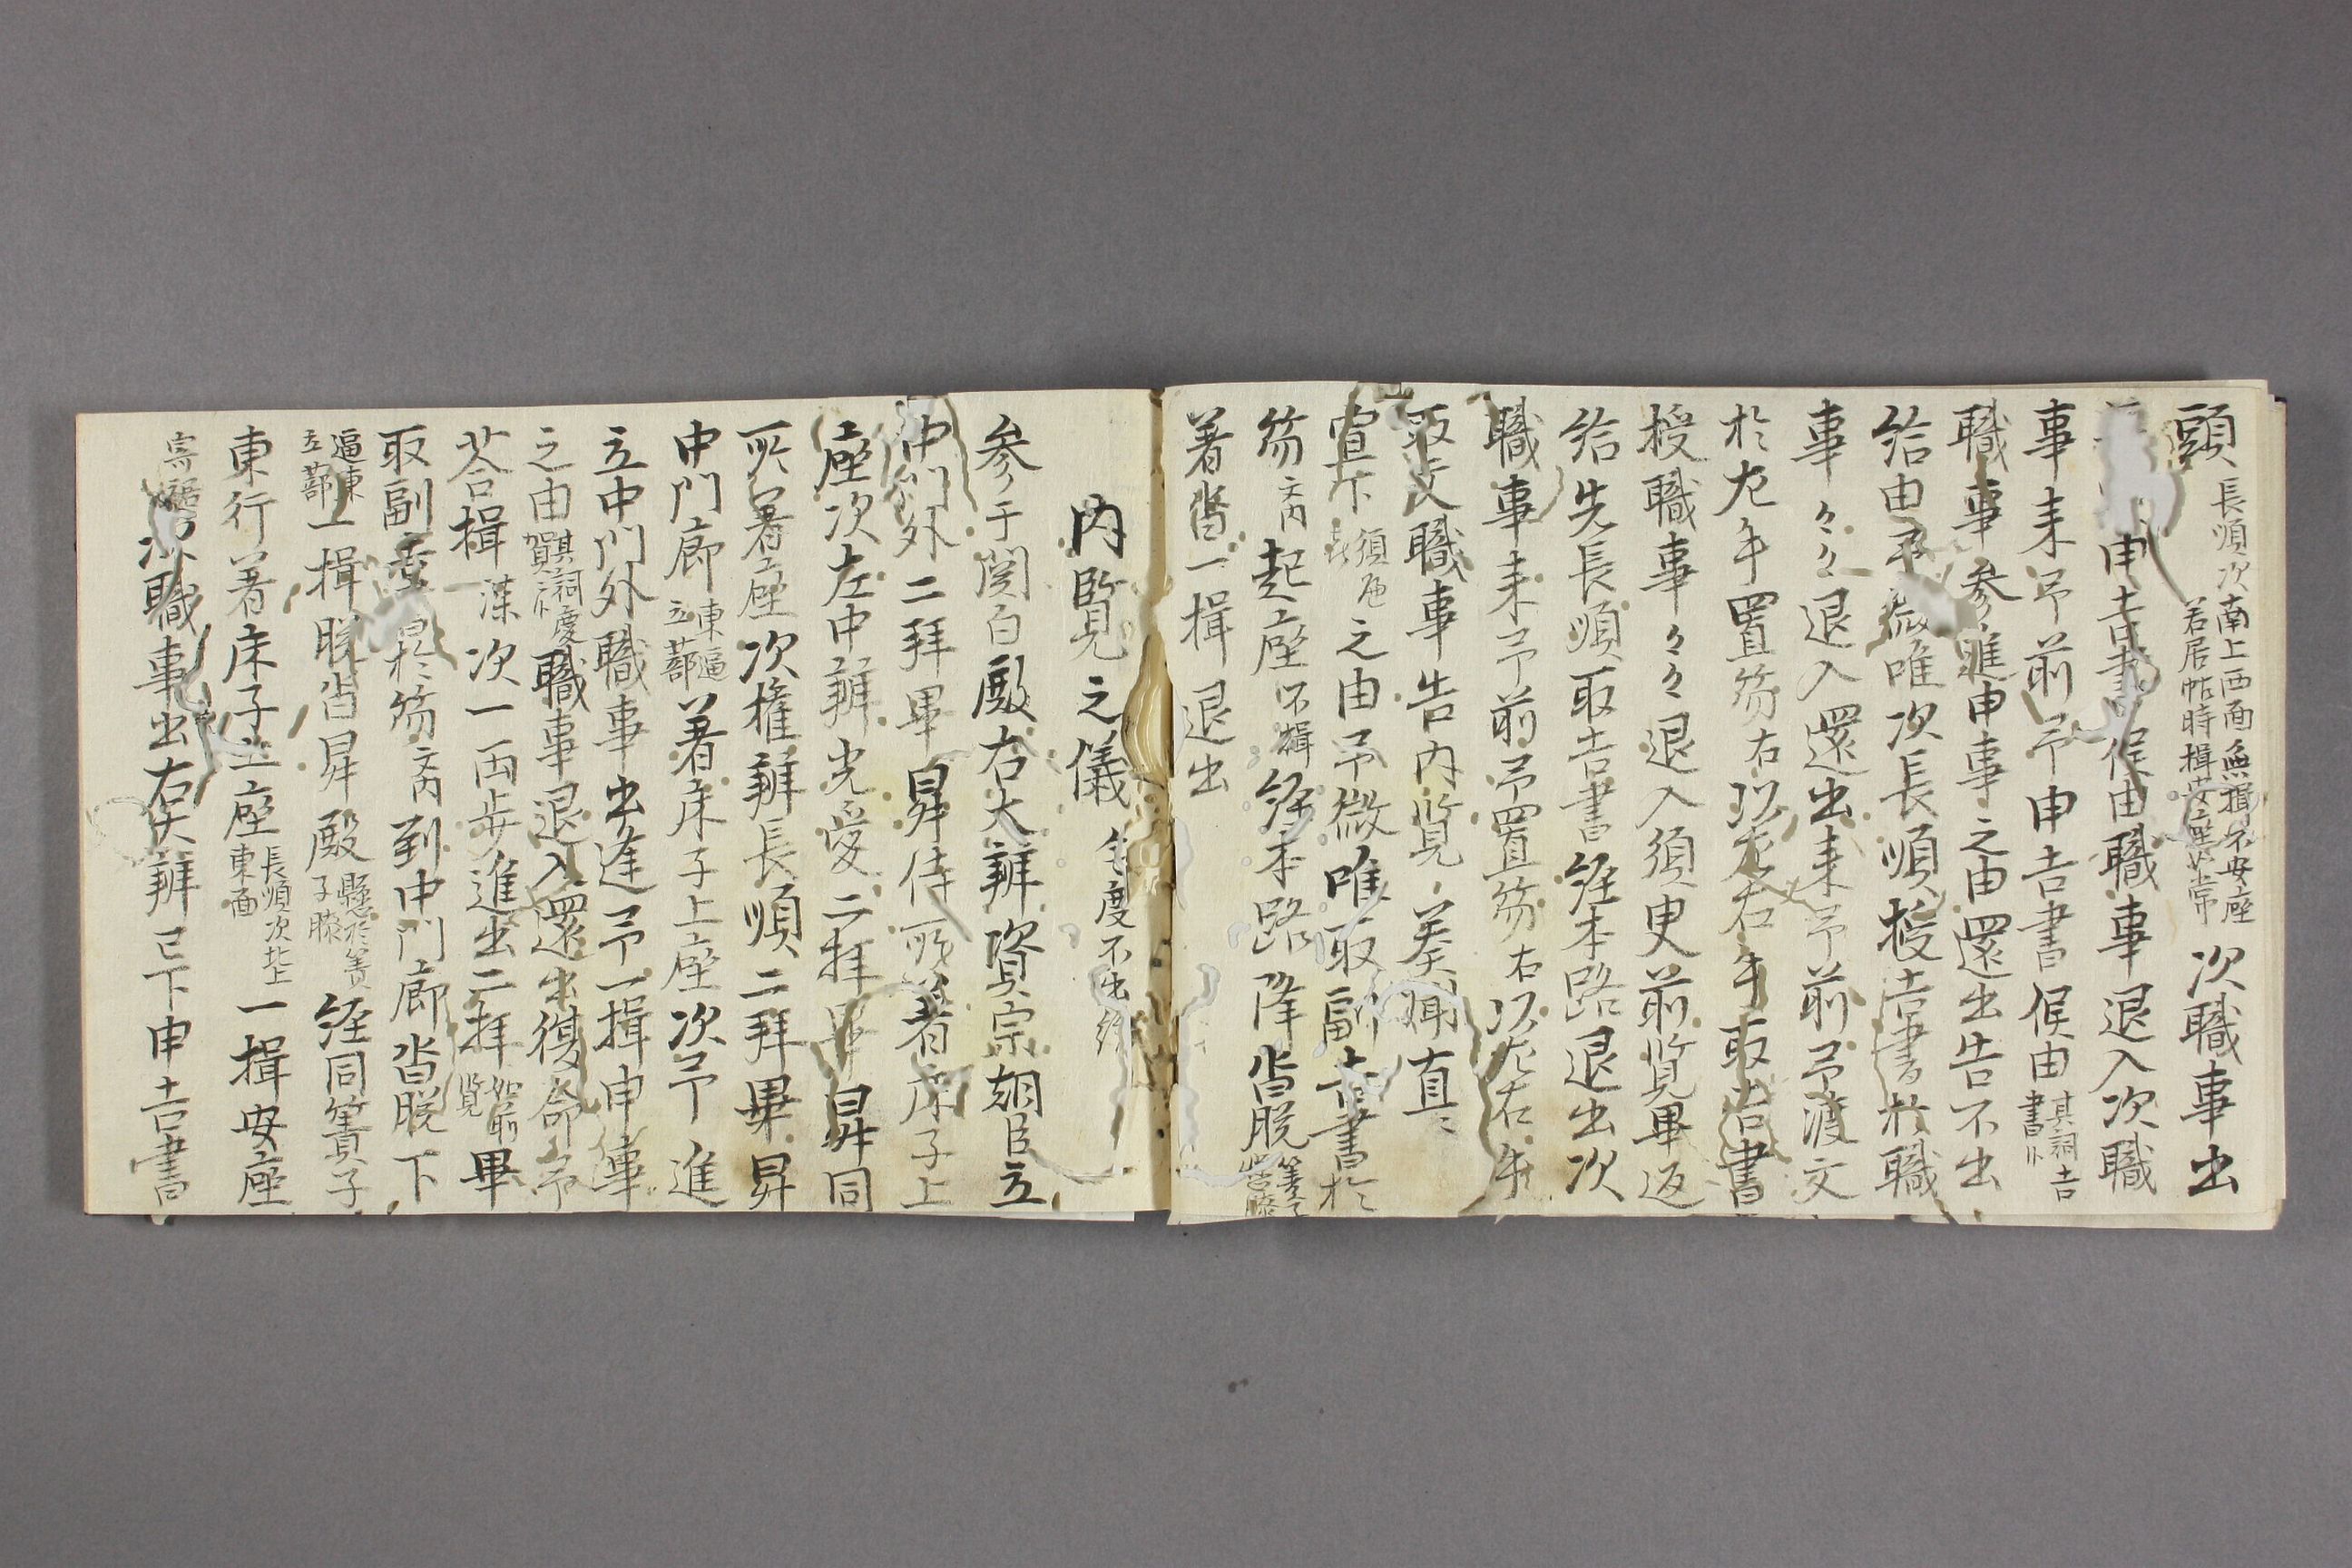 頭長順次南上西面無揖不安座若居帖時揖安座如常次職事出
申吉書候由職事退入次職
事来予前予申吉書候由其詞吉書卜
職事参進申事之由還出告不出
給由予微唯次長順授吉書於職
事々々退入還出来予前予渡文
於左手置笏右以左右手取吉書
授職事々々退入須臾前覧畢返
給先長順取吉書経本路退出次
職事来予前予置笏右以左右手
取文職事告内覧奏聞直ニ
宣下之由予微唯取副吉書於
笏文内起座不揖経本路降沓脱
著沓一揖退出
内覧之儀今度不出給
参于関白殿右大辨資宗朝臣立
中門外二拝畢昇侍所著床子上
座次左中辨光愛二拝畢昇同
所著座次権辨長順二拝畢昇
中門廊東逼立蔀著床子上座次予進
立中門外職事出逢予一揖申慶
之由其詞慶賀卜職事退入還出復命予
答揖深次一両歩進出二拝如前畢
取副於笏文内到中門廊沓脱下
逼東立蔀一揖脱沓昇殿懸於簀子膝経同簀子
東行著床子上座長順次北上東面一揖安座
職事出右大辨已下申吉書